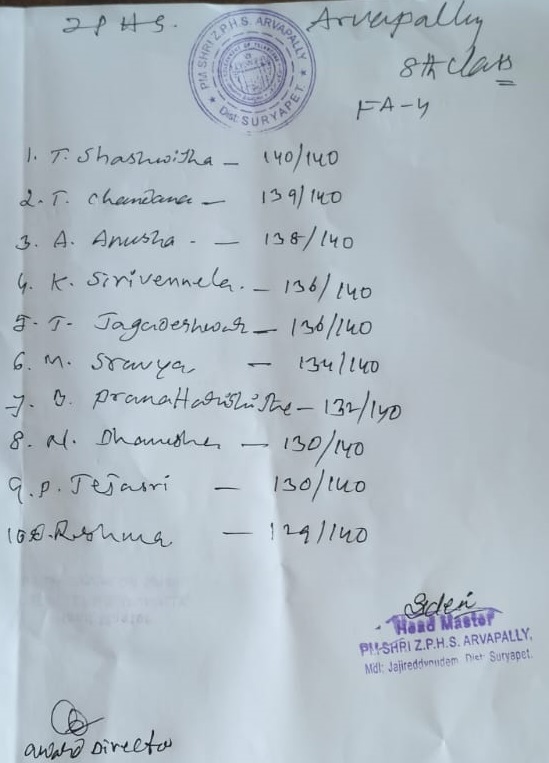 ZPHS. Arvapally
PM SHRI Z.P.H.S. ARVAPALLY
Dist: SURYAPET.
8th class
FA-4
1. T. Shashwitha - 140/140
2. T. Chandana - 139/140
3. A. Anusha - 138/140
4. K. Sirivennela. - 136/140
5. T. Jagadeshwar - 136/140
6. M. Sravya - 134/140
7. - 132/140
8. - 130/140
9. P. Tejasri - 130/140
10. Reshma - 129/140
Head Master
PM-SHRI Z.P.H.S. ARVAPALLY,
Mdl: Jajireddygudem Dist: Suryapet.
award Director